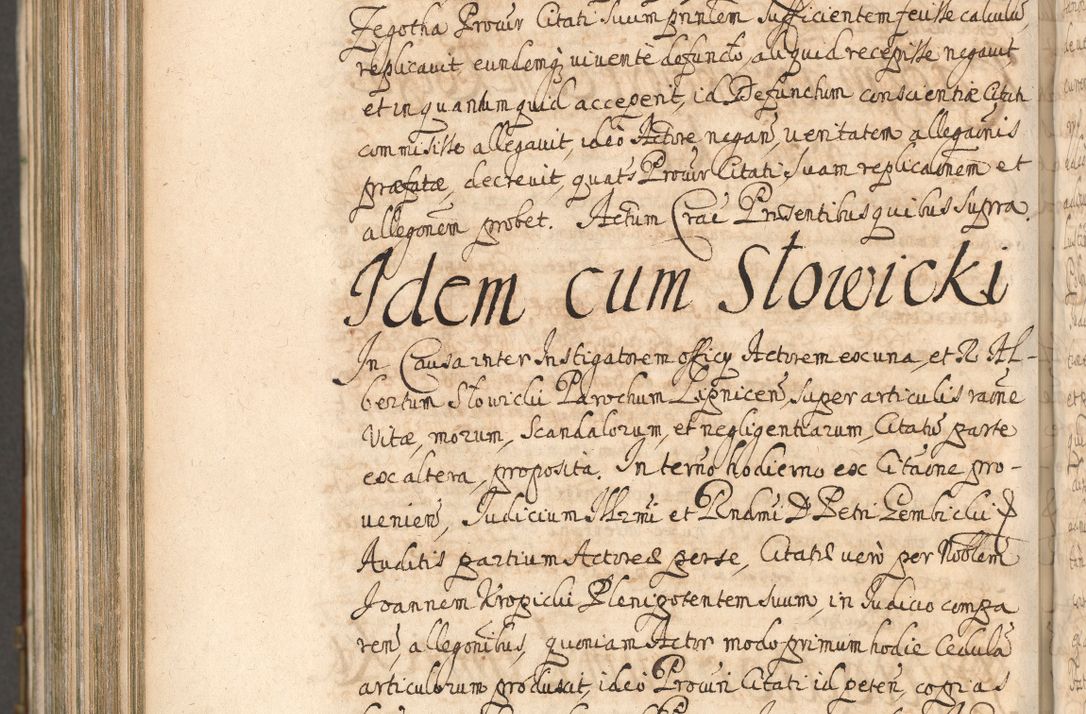 Zegotha Procur Citati suum prinlem sufficientem feuisse calculū
replicavit, eundemq; vivente defuncto, aliquid recepisse negavit
et in quantum quid acceperit, id Defunctum conscientiæ Citati
commisisse allegavit, ideo Actore negan, veritatem allegaōnis
præfatæ, decrevit, quats Procur Citati, suam replicaōnem et
allegōnem probet. Actum Crac Præsentibus quibus supra.
Idem cum Słowicki
In Causa inter Instigatorem officij Actorem ex una, et R. Al-
bertum Słowicki Parochum Lignicen, super articulis raōne
Vitæ, morum, scandalorum, et negligentiarum, Citatū parte
ex altera, proposita. In termo hodierno ex Citaōne pro-
venien, Judicium Illrmi et Rndmi D Petri Gembicki
Auditis partium Actorea per se, Citati vero per Nobilem
Joannem Kropicki Plenipotentem suum, in Judicio compa
ren, allegonibus, quoniam Actor modo primum hodie Cedulā
articulorum produxit, ideo Procuri Citati id peten, copias